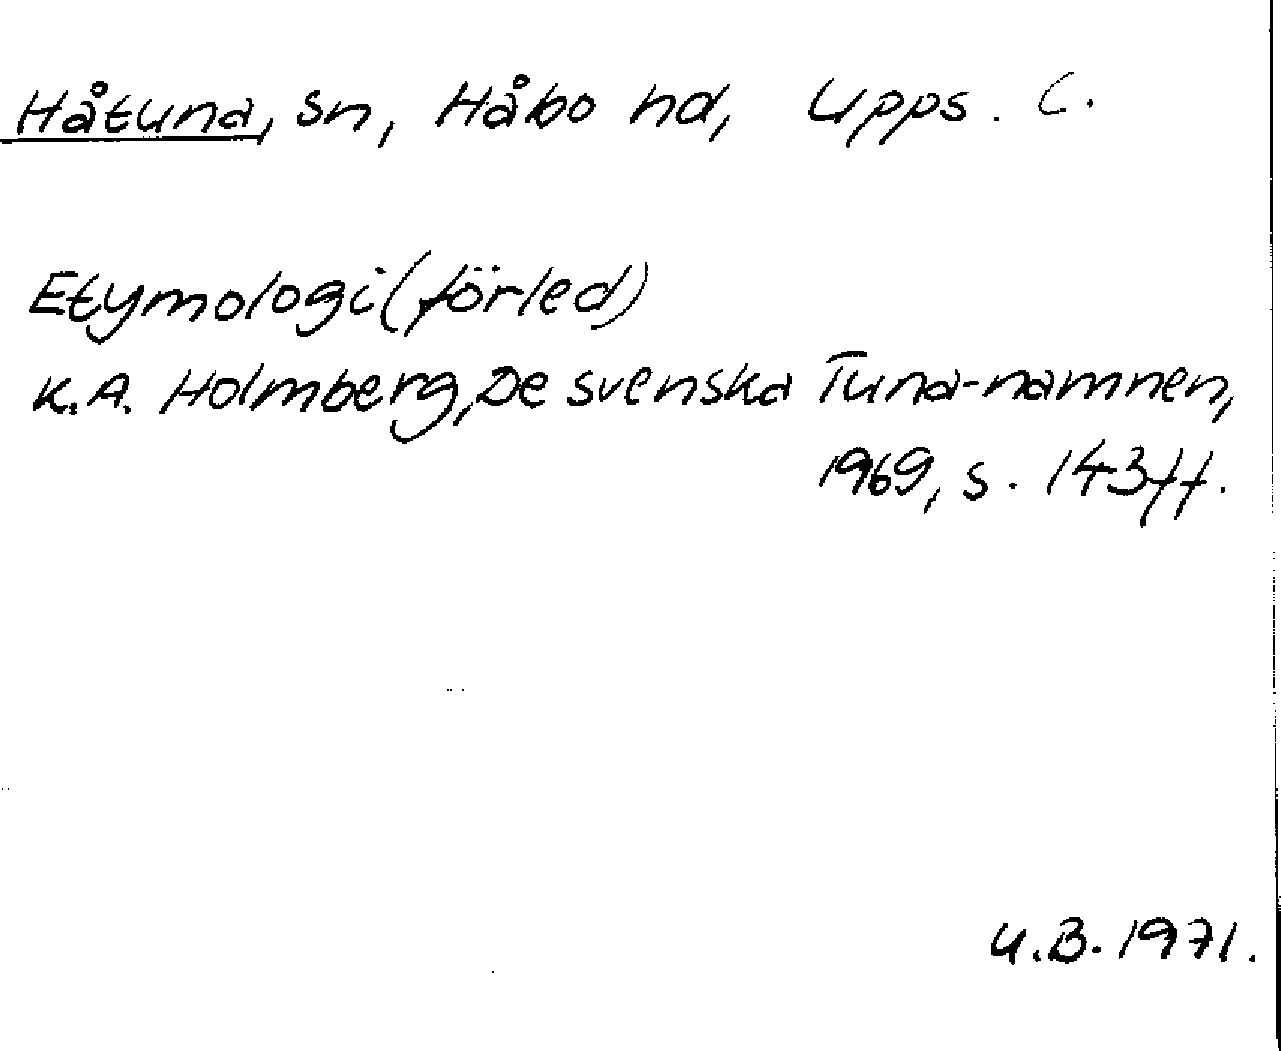 Håtuna, sn, Håbo hd, Upps. l.
Etymologi (förled)
K.A. Holmberg, De svenska Tuna-namnen,
1969, s. 143ff.
U.B. 1971.